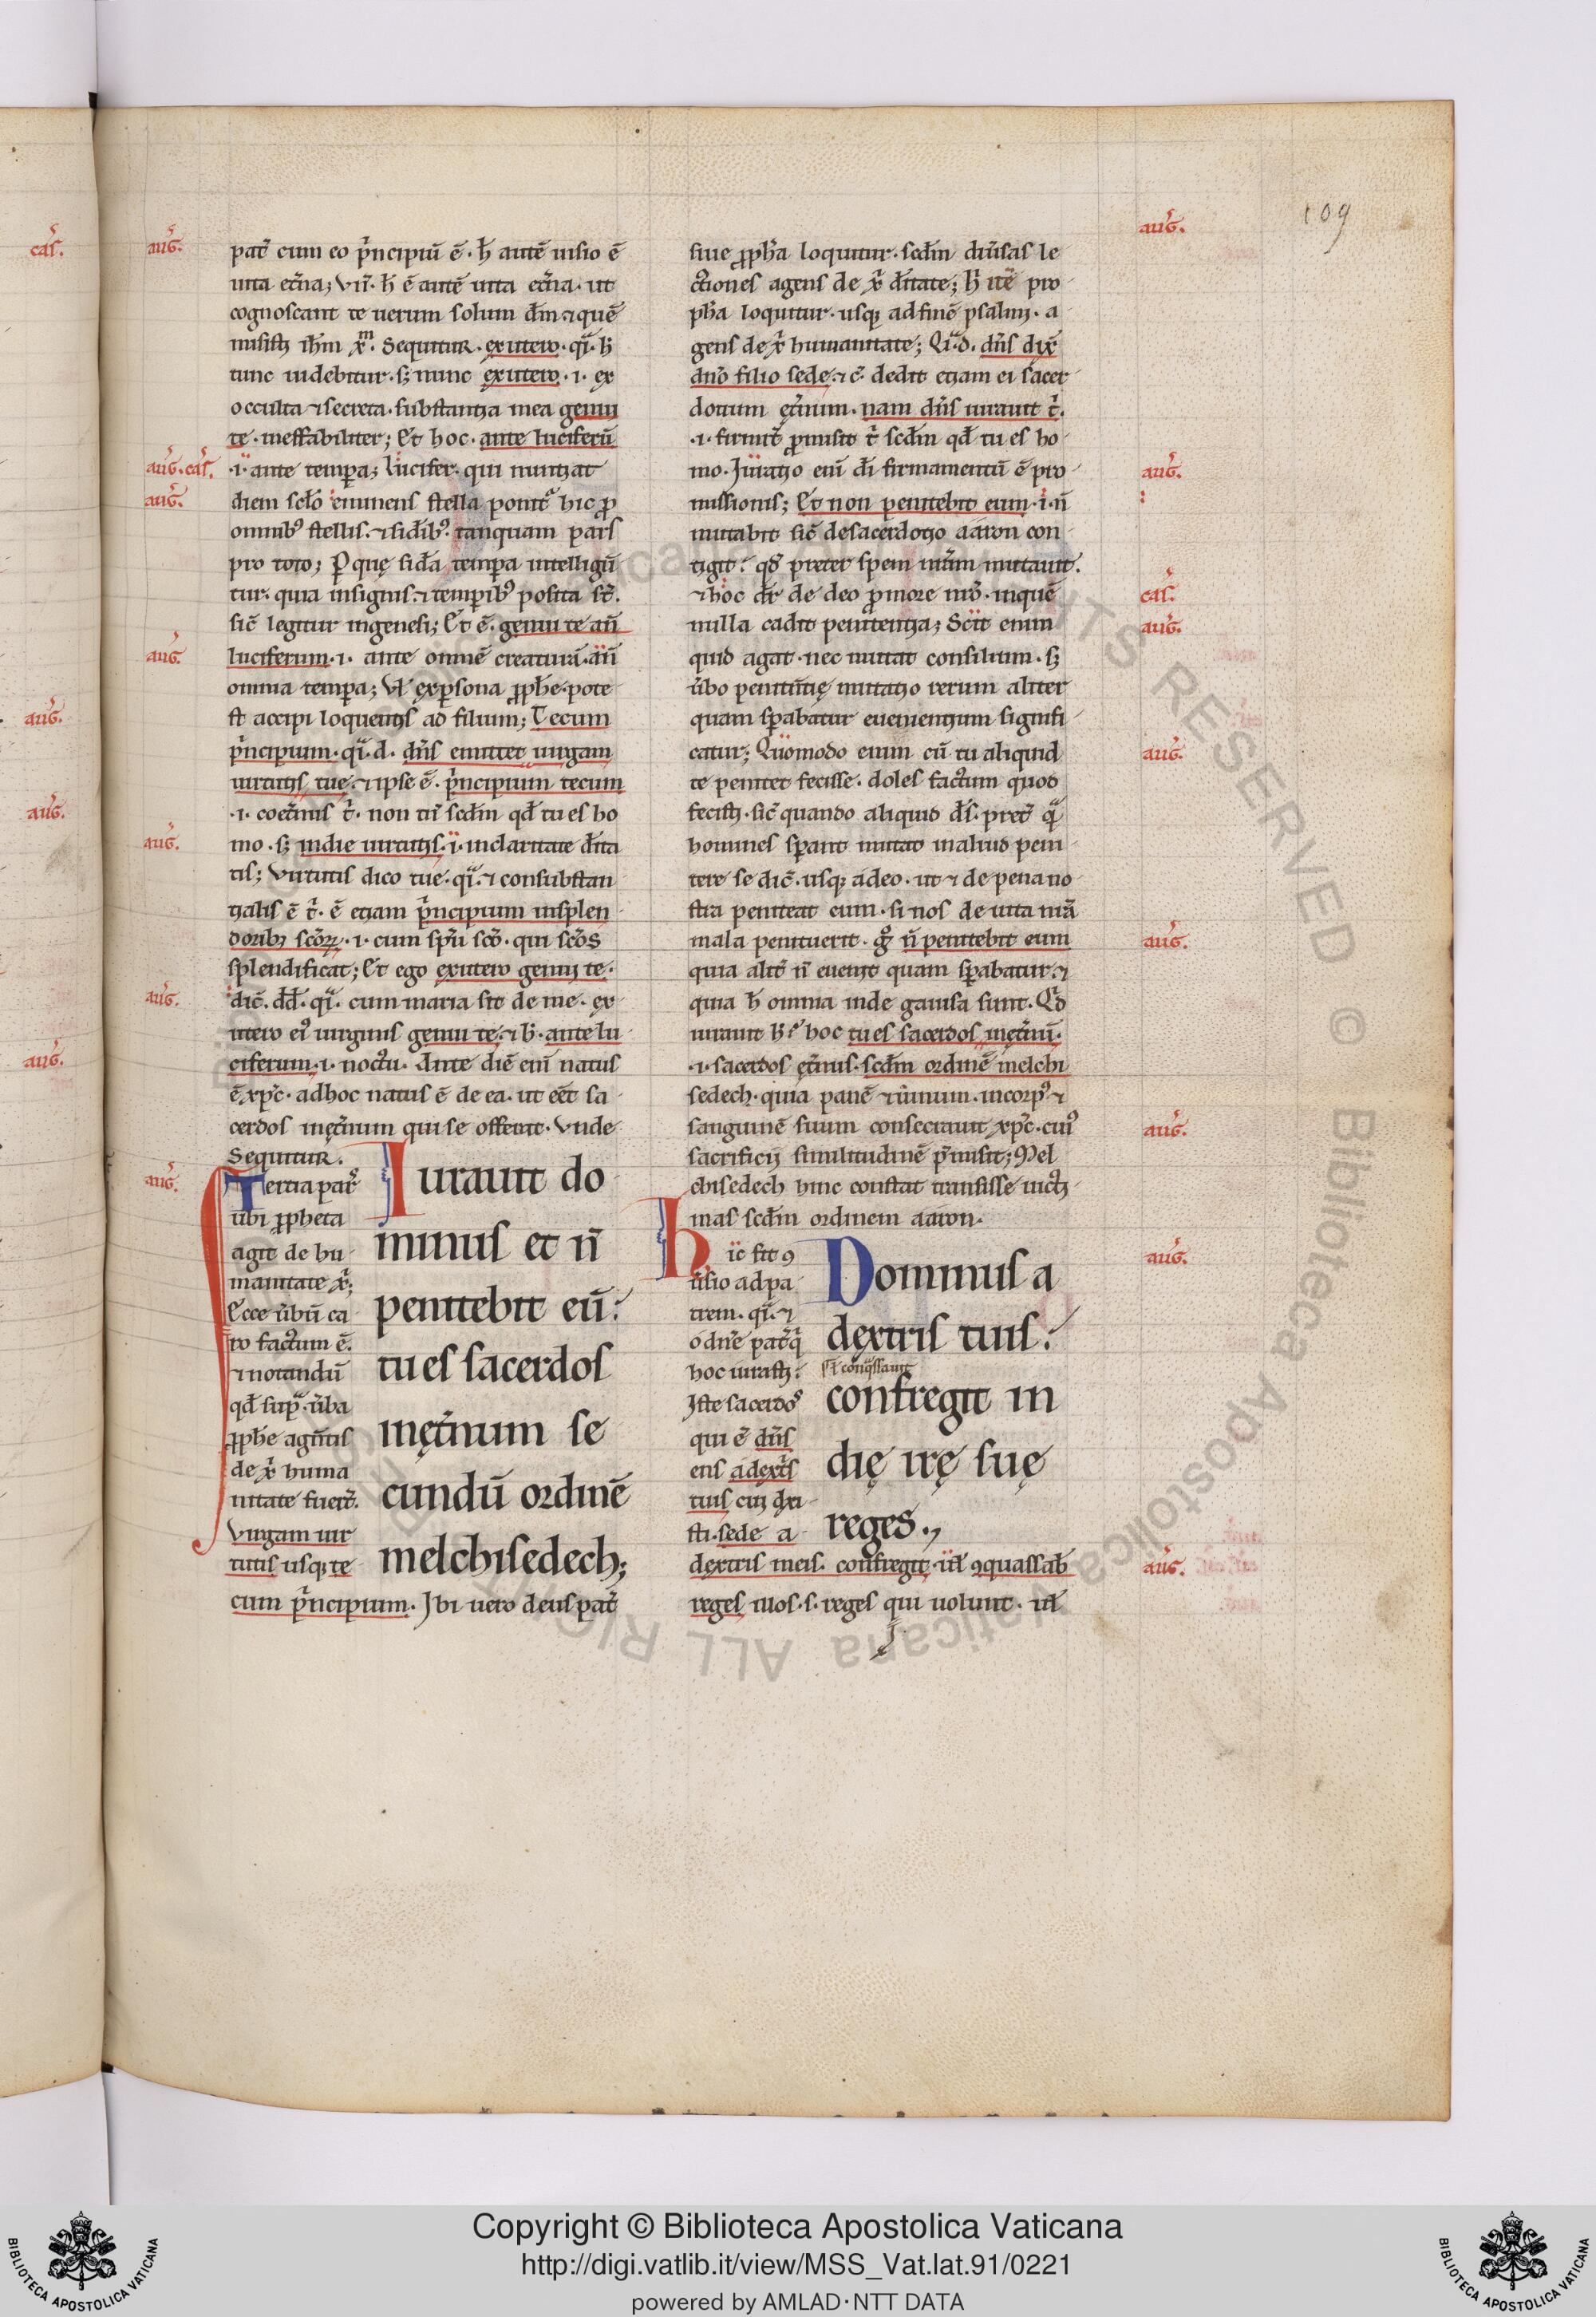 109
caſ̉.
auǵ.
auǵ.
auǵ.
auǵ.
auǵ.
auǵ. caſ̉.
auǵ.
auǵ.
auǵ.
auǵ.
auǵ.
pat̉ cum eo p̉ncipiū ē. h̄ autē uiſio ē
uita et̉na; vn̄. h̄ ē autē uita et̉na. ut
cognoſcant te uerum ſolum d̄m ⁊ quē
miſiſti ih̄m xp̄m. Sequitur. ex utero. qͣi. h̄
tunc uidebitur. ſꝫ nunc ex utero .i. ex
occulta ⁊ ſecreta. ſubſtantia mea genui
te. ineffabiliter; Et hoc. ante luciferū
.i. ante tempꝰa; Lucifer. qui nuntiat
diem ſcl̄o eminens ſtella ponit̉ hic ꝓ
omnibꝰ ſtellis. ⁊ ſid̉ibꝰ. tanquam pars
pro toto; Per quę ſid̉a tempꝑa intelligū
tur. quia in ſignis. ⁊ temporibꝰ poſita ſt̄.
ſic̄ legitur in geneſi; Et ē. genui te an̄
luciferum .i. ante omnē creaturā. an̄
omnia tempꝑa; Vl̄ ex ꝑſona ꝓph̄e. pote
ſt accipi loquentis ad filium; Tecum
p̉ncipium. qͣi.d. dn̄s emittet uirgam
uirtutis tuę. ⁊ ipſe ē. p̉ncipium tecum
.i. coet̉nus t̉. non tn̄ ſcd̄m qd̄ tu es ho
mo. ſꝫ in die uirtutis .i. in claritate d̄ita
tis; Virtutis dico tue. qͣi. ⁊ conſubſtan
tialis ē t̉. ē etiam p̉ncipium in ſplen
doribꝫ ſcōꝝ .i. cum ſpū ſcō. qui ſcōs
ſplendificat; Et ego ex utero genui te.
dic̄. dd̄. qͣi. cum maria ſit de me. ex
utero eiꝰ uirginis genui te. ⁊ h̄. ante lu
ciferum .i. noctu. Ante diē enī natus
ē xp̄c. ad hoc natus ē de ea. ut eēt ſa
cerdos in ęt̉num qui ſe offerret. Vnde
Sequitur.
Tertia parſ
ubi ꝓpheta
agit de hu
manitate xp̉i;
Ecce ūbū ca
ro factum ē.
⁊ notandū
qd̄ ſupͣ. ūba
ꝓph̄e agn̄tis
de xp̉i huma
nitate fuert̄.
Virgam uir
tutis uſqꝫ te
cum p̉ncipium. Ibi uero deus pat̉
Iurauit do
minus et n̄
penitebit eū:
tu es ſacerdos
in ęt̉num ſe
cundū ordinē
melchiſedech;
ſiue ꝓph̄a loquitur. ſcd̄m diūſas le
ctiones agens de xp̉i d̄itate; h̄ itē pro
ph̄a loquitur. uſqꝫ ad finē pſalmi. a
gens de xp̉i humanitate; Qͣi.d. dn̄s dix̄
dn̄o filio ſede. ⁊ c̄. dedit etiam ei ſacer
dotium ęt̉num. nam dn̄s iurauit t̉.
.i. firmit̉ ꝓmiſit t̉ ſcd̄m qd̄ tu es ho
mo. Iuratio enī d̄i firmamentū ē pro
miſſionis; Et non penitebit eum .i. n̄
mutabit ſic̄ de ſacerdotio aaron con
tigit: qd̄ preter ſpem nr̄am mutauit.
⁊ hoc dr̄ de deo ꝓ more nrō. in quē
nulla cadit penitentia; Scit enim
quid agat. nec mutat conſilium. ſꝫ
ūbo penitn̄tię mutatio rerum aliter
quam ſꝑabatur euenientium ſignifi
catur; Quomodo enim cū tu aliquid
te penitet feciſſe. doles factum quod
feciſti. ſic̄ quando aliquid d̄s. pret̉ qͣ
homines ſꝑant mutat in aliud peni
tere ſe dic̄. uſqꝫ adeo. ut ⁊ de pena no
ſtra peniteat eum. ſi nos de uita nr̄a
mala penituerit. gͦ n̄ penitebit eum
quia alit̉ n̄ euenit quam ſꝑabatur. ⁊
quia h̄ omnia inde gauiſa ſunt. Qd̄
iurauit h̄ ē hoc tu es ſacerdos in ęt̉nū.
.i. ſacerdos ęt̉nus. ſcd̄m ordinē melchi
ſedech. quia panē ⁊ uinum. in corpꝰ ⁊
ſanguinē ſuum conſecrauit xp̄c. cuiꝰ
ſacrificii ſimilitudinē p̄miſit; Mel
chiſedech hinc conſtat tranſiſſe uicti
mas ſcd̄m ordinem aaron.
Hic fit ꝯ
ūſio ad pa
trem. qͣi. ⁊
o dn̄e pat̉ qͥ
hoc iuraſti:
Iſte ſacerdoſ
qui ē dn̄s
ens a dext̉s
tuis cui dixi
ſti. ſede a
dextris meis. confregit. ul̄ ꝯquaſſab̄
reges tuos .ſ. reges qui uolunt. ul̄
Dominus a
dextris tuis:
ſcͥ conqͣſſauit
confregit in
dię irę ſuę
reges.,
auǵ.
auǵ.
caſ̉.
auǵ.
auǵ.
auǵ.
auǵ.
auǵ.
auǵ.
Copyright © Biblioteca Apostolica Vaticana
http://digi.vatlib.it/view/MSS_Vat.lat.91/0221
powered by AMLAD·NTT DATA
BIBLIOTECA APOSTOLICA VATICANA
BIBLIOTECA APOSTOLICA VATICANA